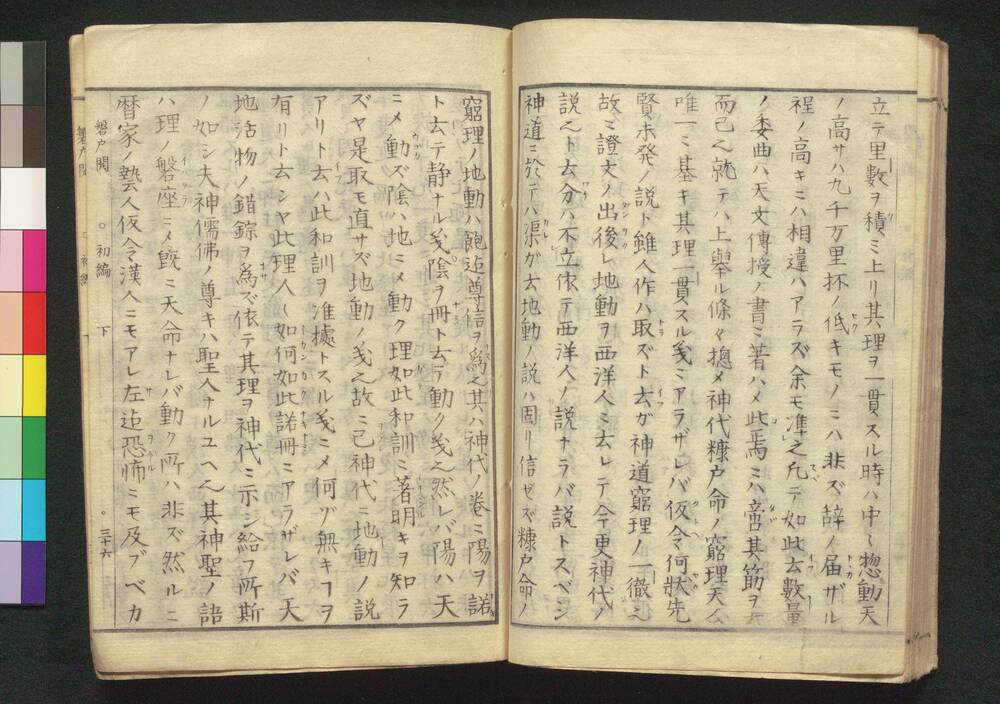 立テ里數ヲ積ミ上リ其理ヲ一貫スル時ハ中〻惣動天
ノ高サハ九千万里抔ノ低キモノニハ非ズ辞ノ届ザル
程ノ高キニハ相違ハアラズ余モ準之凡テ如此去數量
ノ委曲ハ天文傳授ノ書ニ著ハメ此焉ニハ啻其筋ヲ示
而已之就テハ上舉ル條々揔メ神代糠戸命ノ窮理天
唯一ニ基キ其理一貫スル𢦏ニアラザレバ仮令何狀先
賢未発ノ説ト雖人作ハ取ズト云ガ神道窮理ノ一徹之
故ニ證文ノ出後レ地動ヲ西洋人ニ云レテ今更神代ノ
説之ト云分ハ不立依テ西洋人ノ説ナラバ説トスベシ
神道ニ於テハ渠ガ云地動ノ説ハ固リ信ゼズ糠戸命ノ
窮理ノ地動ハ飽迄尊信ヲ爲之其ハ神代ノ巻ニ陽ヲ諾
ト云テ静ナル𢦏陰ヲ冊ト云テ動ク𢦏之然レバ陽ハ天
ニメ動ズ陰ハ地ニメ動ク理如此和訓ニ著明キヲ知ラ
ズヤ是取モ直サズ地動ノ𢦏之故ニ已神代ニ地動ノ説
アリト云ハ此和訓ヲ准據トスル𢦏ニメ何ヅ無キヿヲ
有リト云シヤ此理人〻如何如此諾冊ニアラザレバ天
地活物ノ錯綜ヲ爲ズ依テ其理ヲ神代ニ示シ給フ所斯
ノ如シ夫神儒佛ノ尊キハ聖人ナルユヘ之其神聖ノ語
ハ理ノ磐座ニメ既ニ天命ナレバ動ク所ハ非ズ然ルニ
暦家ノ藝人仮令漢人ニモアレ左迄恐怖ニモ及ブベカ
磐戸開 ○初編 下 ○三十六